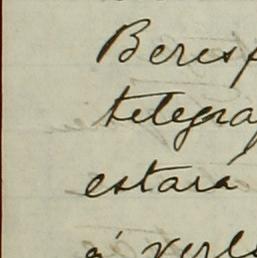 Beresf
telegra
estará
á verl